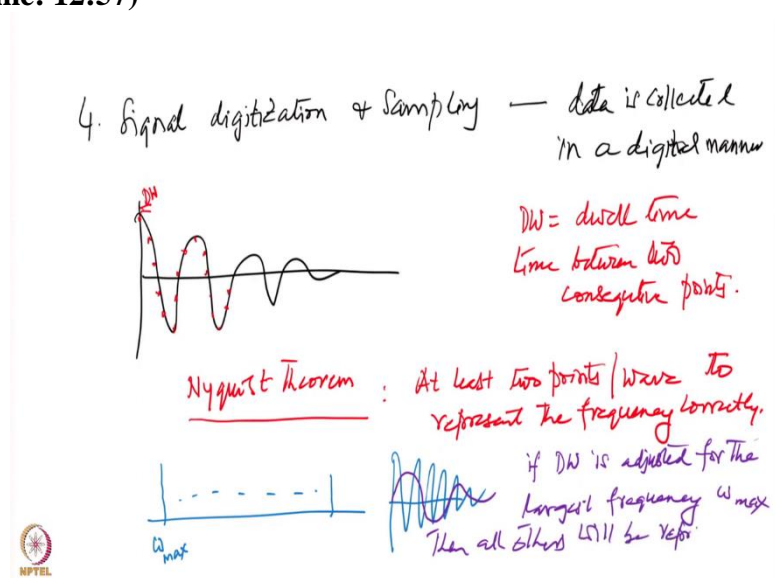 12:57)
4. Signal digitization & Sampling — data is collected
in a digital manner
DW
DW = dwell time
time between two
consequtive points.
Nyquist Theorem : At least two points/wave to
represent the frequency correctly.
if DW is adjusted for the
largest frequency ω max
Then all others will be repr
ω max
NPTEL